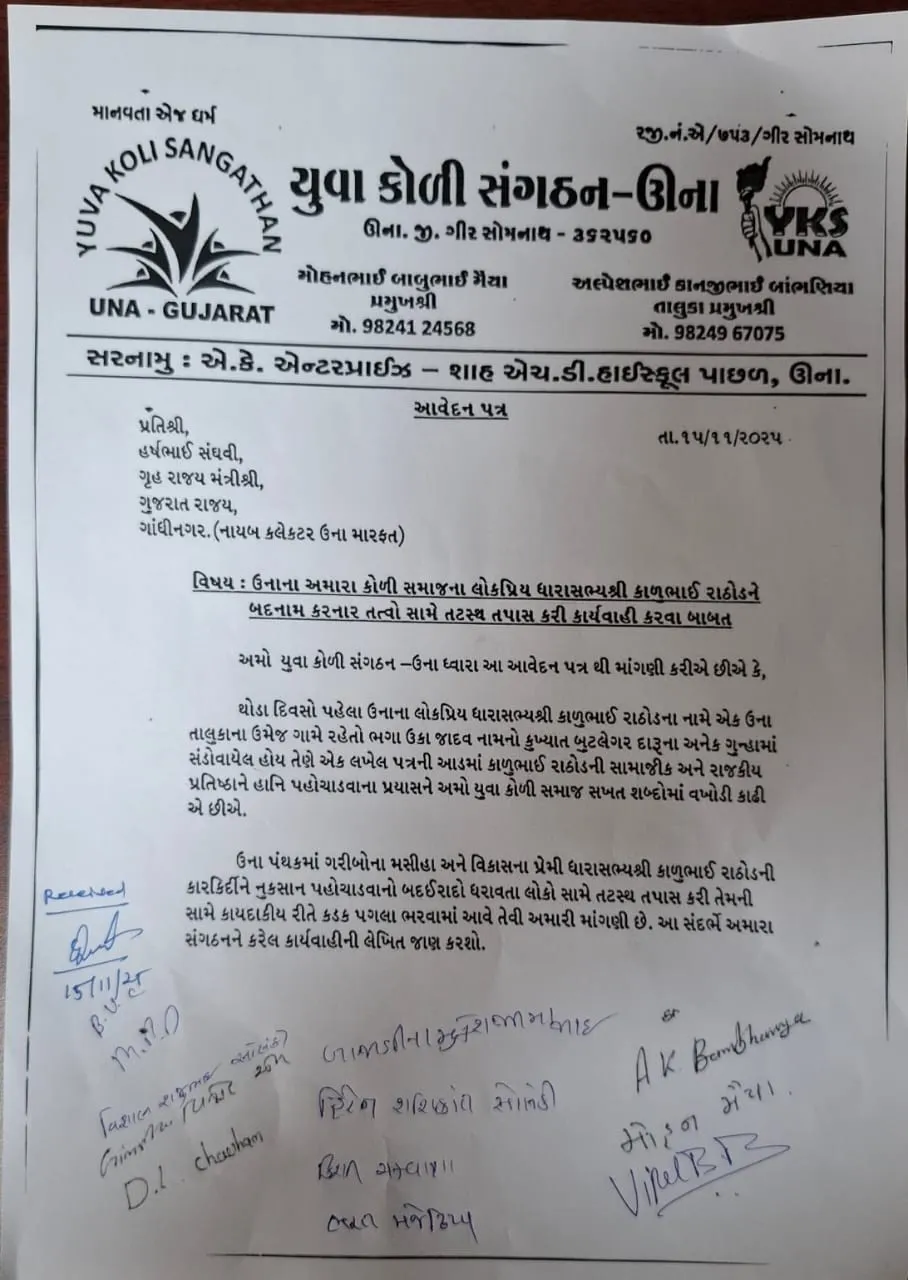 માનવતા એજ ધર્મ
રજી.નં.એ/૭૫૩/ગીર સોમનાથ
YUVA KOLI SANGATHAN
UNA - GUJARAT
યુવા કોળી સંગઠન-ઊના
ઊના. જી. ગીર સોમનાથ - ૩૬૨૫૬૦
YKS
UNA
મોહનભાઈ બાબુભાઈ મૈયા
પ્રમુખશ્રી
મો. 98241 24568
અલ્પેશભાઈ કાનજીભાઈ બાંભણિયા
તાલુકા પ્રમુખશ્રી
મો. 98249 67075
સરનામુ : એ.કે. એન્ટરપ્રાઈઝ – શાહ એચ.ડી.હાઈસ્કૂલ પાછળ, ઊના.
આવેદન પત્ર
પ્રતિશ્રી,
તા.૧૫/૧૧/૨૦૨૫
હર્ષભાઈ સંઘવી,
ગૃહ રાજય મંત્રીશ્રી,
ગુજરાત રાજય,
ગાંધીનગર.(નાયબ કલેકટર ઉના મારફત)
વિષય : ઉનાના અમારા કોળી સમાજના લોકપ્રિય ધારાસભ્યશ્રી કાળુભાઈ રાઠોડને
બદનામ કરનાર તત્વો સામે તટસ્થ તપાસ કરી કાર્યવાહી કરવા બાબત
અમો યુવા કોળી સંગઠન –ઉના ધ્વારા આ આવેદન પત્ર થી માંગણી કરીએ છીએ કે,
થોડા દિવસો પહેલા ઉનાના લોકપ્રિય ધારાસભ્યશ્રી કાળુભાઈ રાઠોડના નામે એક ઉના
તાલુકાના ઉમેજ ગામે રહેતો ભગા ઉકા જાદવ નામનો કુખ્યાત બુટલેગર દારૂના અનેક ગુન્હામાં
સંડોવાયેલ હોય તેણે એક લખેલ પત્રની આડમાં કાળુભાઈ રાઠોડની સામાજીક અને રાજકીય
પ્રતિષ્ઠાને હાનિ પહોચાડવાના પ્રયાસને અમો યુવા કોળી સમાજ સખત શબ્દોમાં વખોડી કાઢી
એ છીએ.
ઉના પંથકમાં ગરીબોના મસીહા અને વિકાસના પ્રેમી ધારાસભ્યશ્રી કાળુભાઈ રાઠોડની
કારકિર્દીને નુકસાન પહોચાડવાનો બદઈરાદો ધરાવતા લોકો સામે તટસ્થ તપાસ કરી તેમની
સામે કાયદાકીય રીતે કડક પગલા ભરવામાં આવે તેવી અમારી માંગણી છે. આ સંદર્ભે અમારા
સંગઠનને કરેલ કાર્યવાહીની લેખિત જાણ કરશો.
Received
15/11/25
A K Bambhaniya
મોહન મૈયા.
D.L. Chauhan